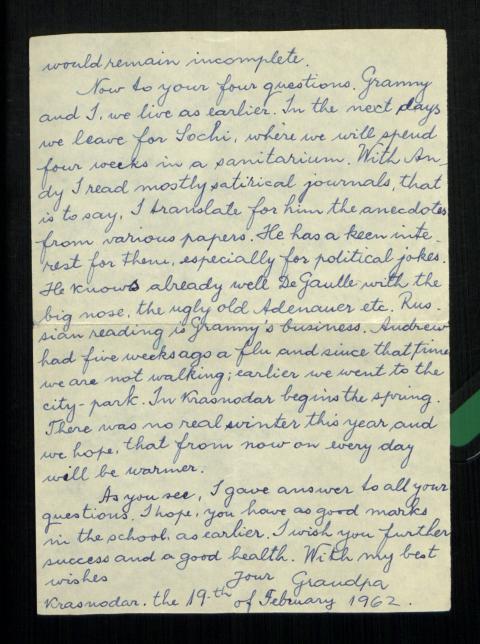 would remain incomplete.
Now to your four questions. Granny
and I, we live as earlier. In the next days
we leave for Sochi, where we will spend
four weeks in a sanitarium. With An-
dy I read mostly satirical journals, that
is to say, I translate for him the anecdotes
from various papers. He has a keen inte-
rest for them, especially for political jokes.
He knows already well De Gaulle with the
big nose, the ugly old Adenauer etc. Rus-
sian reading is Granny's business. Andrew
had five weeks ago a flu and since that time
we are not walking; earlier we went to the
city-park. In Krasnodar begins the spring.
There was no real winter this year, and
we hope, that from now on every day
will be warmer.
As you see, I gave answer to all your
questions. I hope, you have as good marks
in the school, as earlier. I wish you further
success and a good health. With my best
wishes
Your Grandpa
Krasnodar. the 19-th of February 1962.